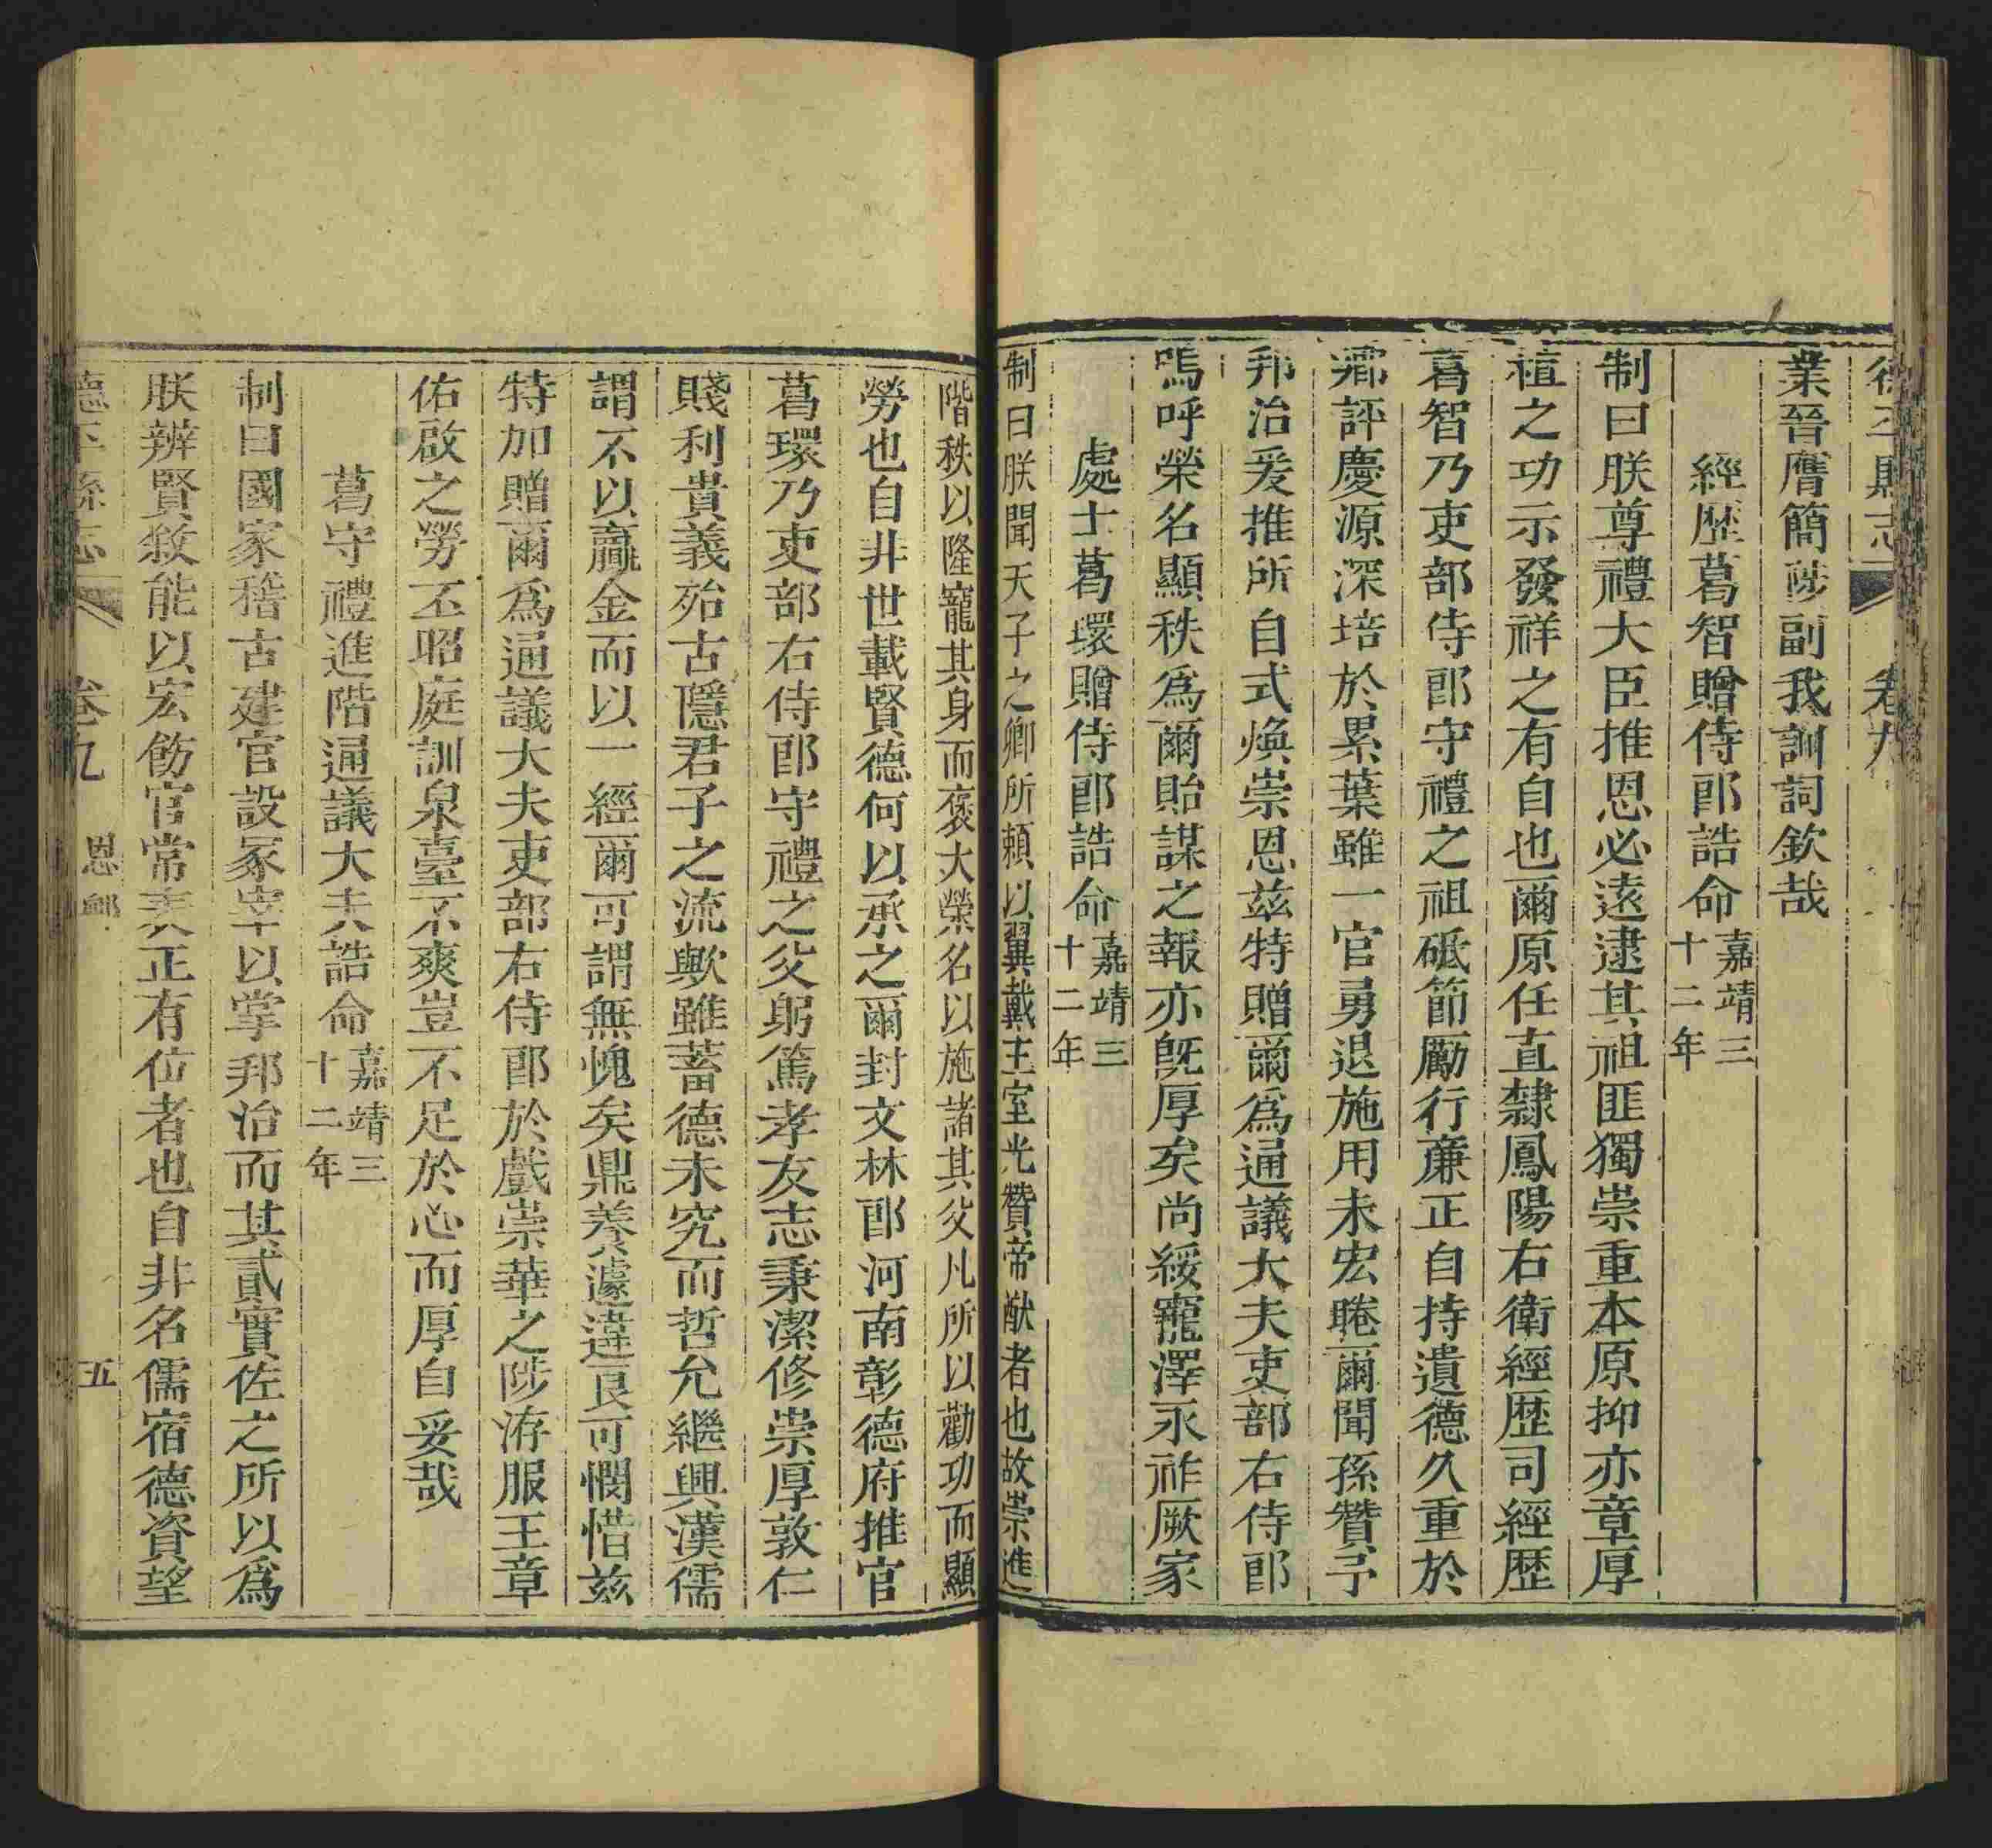 業晉膺簡陟副我訓詞欽哉
經歴葛智贈侍郎誥命嘉靖三十二年
制曰朕尊禮大臣推恩必遠逮其祖匪獨崇重本原抑亦章厚
植之功示發祥之有自也爾原任直隸鳳陽右衛經歴司經歴
葛智乃吏部侍郎守禮之祖砥節勵行亷正自持遺德久重於
鄉評慶源深培於累葉雖一官勇退施用未宏睠爾聞孫贊予
邦治爰推所自式煥崇恩兹特贈爾為通議大夫吏部右侍郎
嗚呼榮名顯秩為爾貽謀之報亦旣厚矣尚綏寵澤永祚厥家
處士葛環贈侍郎誥命嘉靖三十二年
制曰朕聞天子之卿所頼以翼戴王室光贊帝猷者也故崇進
階秩以隆寵其身而褒大榮名以施諸其父凡所以勸功而顯
勞也自非世載賢德何以承之爾封文林郎河南彰德府推官
葛環乃吏部右侍郎守禮之父躬篤孝友志秉潔修崇厚敦仁
賤利貴義殆古隱君子之流歟雖蓄德未究而哲允繼興漢儒
謂不以贏金而以一經爾可謂無愧矣鼎養遽違良可憫惜兹
特加贈爾為通議大夫吏部右侍郎於戲崇華之陟洊服王章
佑啟之勞丕昭庭訓泉臺不爽豈不足於心而厚自妥哉
葛守禮進階通議大夫誥命嘉靖三十二年
制曰國家稽古建官設冢宰以掌邦治而其貳實佐之所以為
朕辨賢敘能以宏飭官常表正有位者也自非名儒宿德資望
德平縣志 卷九 恩䘏 五